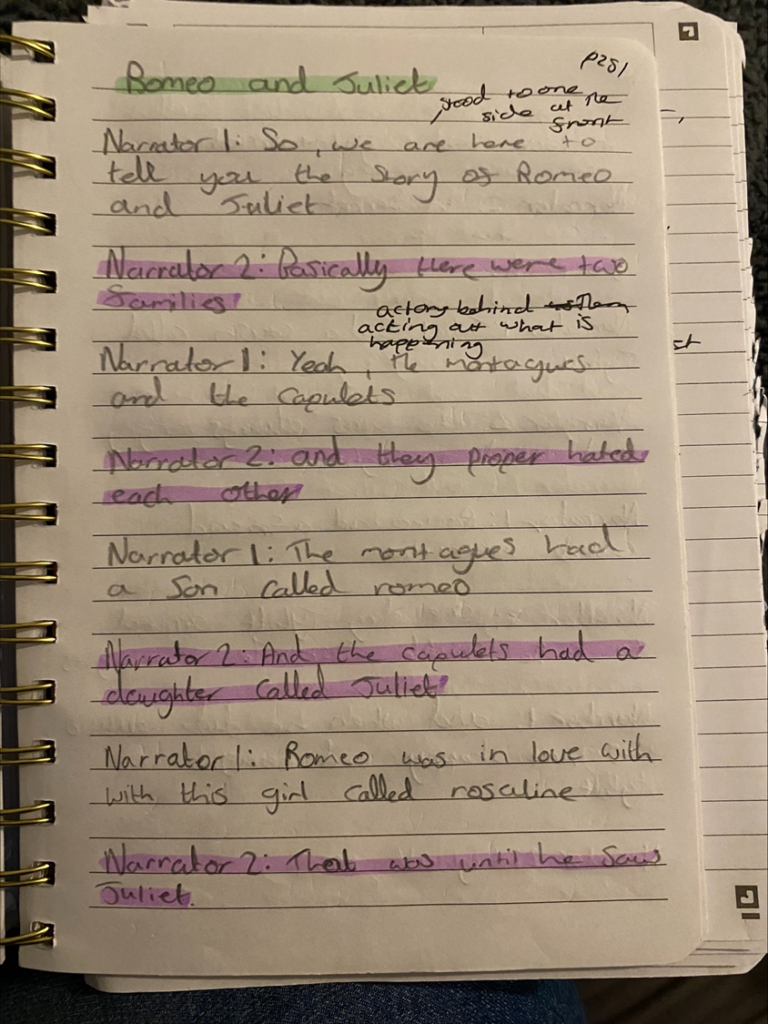 P251
Romeo and Juliet
stood to one
side at the
front
Narrator 1: So, we are here to
tell you the story of Romeo
and Juliet
Narrator 2: Basically there were two
families
actors behind
acting out what is
happening
Narrator 1: Yeah, the montagues
and the Capulets
Narrator 2: and they proper hated
each other
Narrator 1: The montagues had
a son called romeo
Narrator 2: And the capulets had a
daughter called Juliet
Narrator 1: Romeo was in love with
with this girl called rosaline
Narrator 2: That was until he saw
Juliet.
st